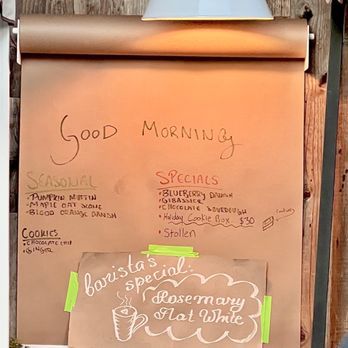 Good Morning
Seasonal
• Pumpkin Muffin
• Maple Oat Scone
• Blood Orange Danish
Cookies
• Chocolate Chip
• Ginger
Specials
• Blueberry Danish
• Gibassier
• Chocolate Sourdough
• Holiday Cookie Box $30
• Stollen
barista's
special:
Rosemary
Flat White